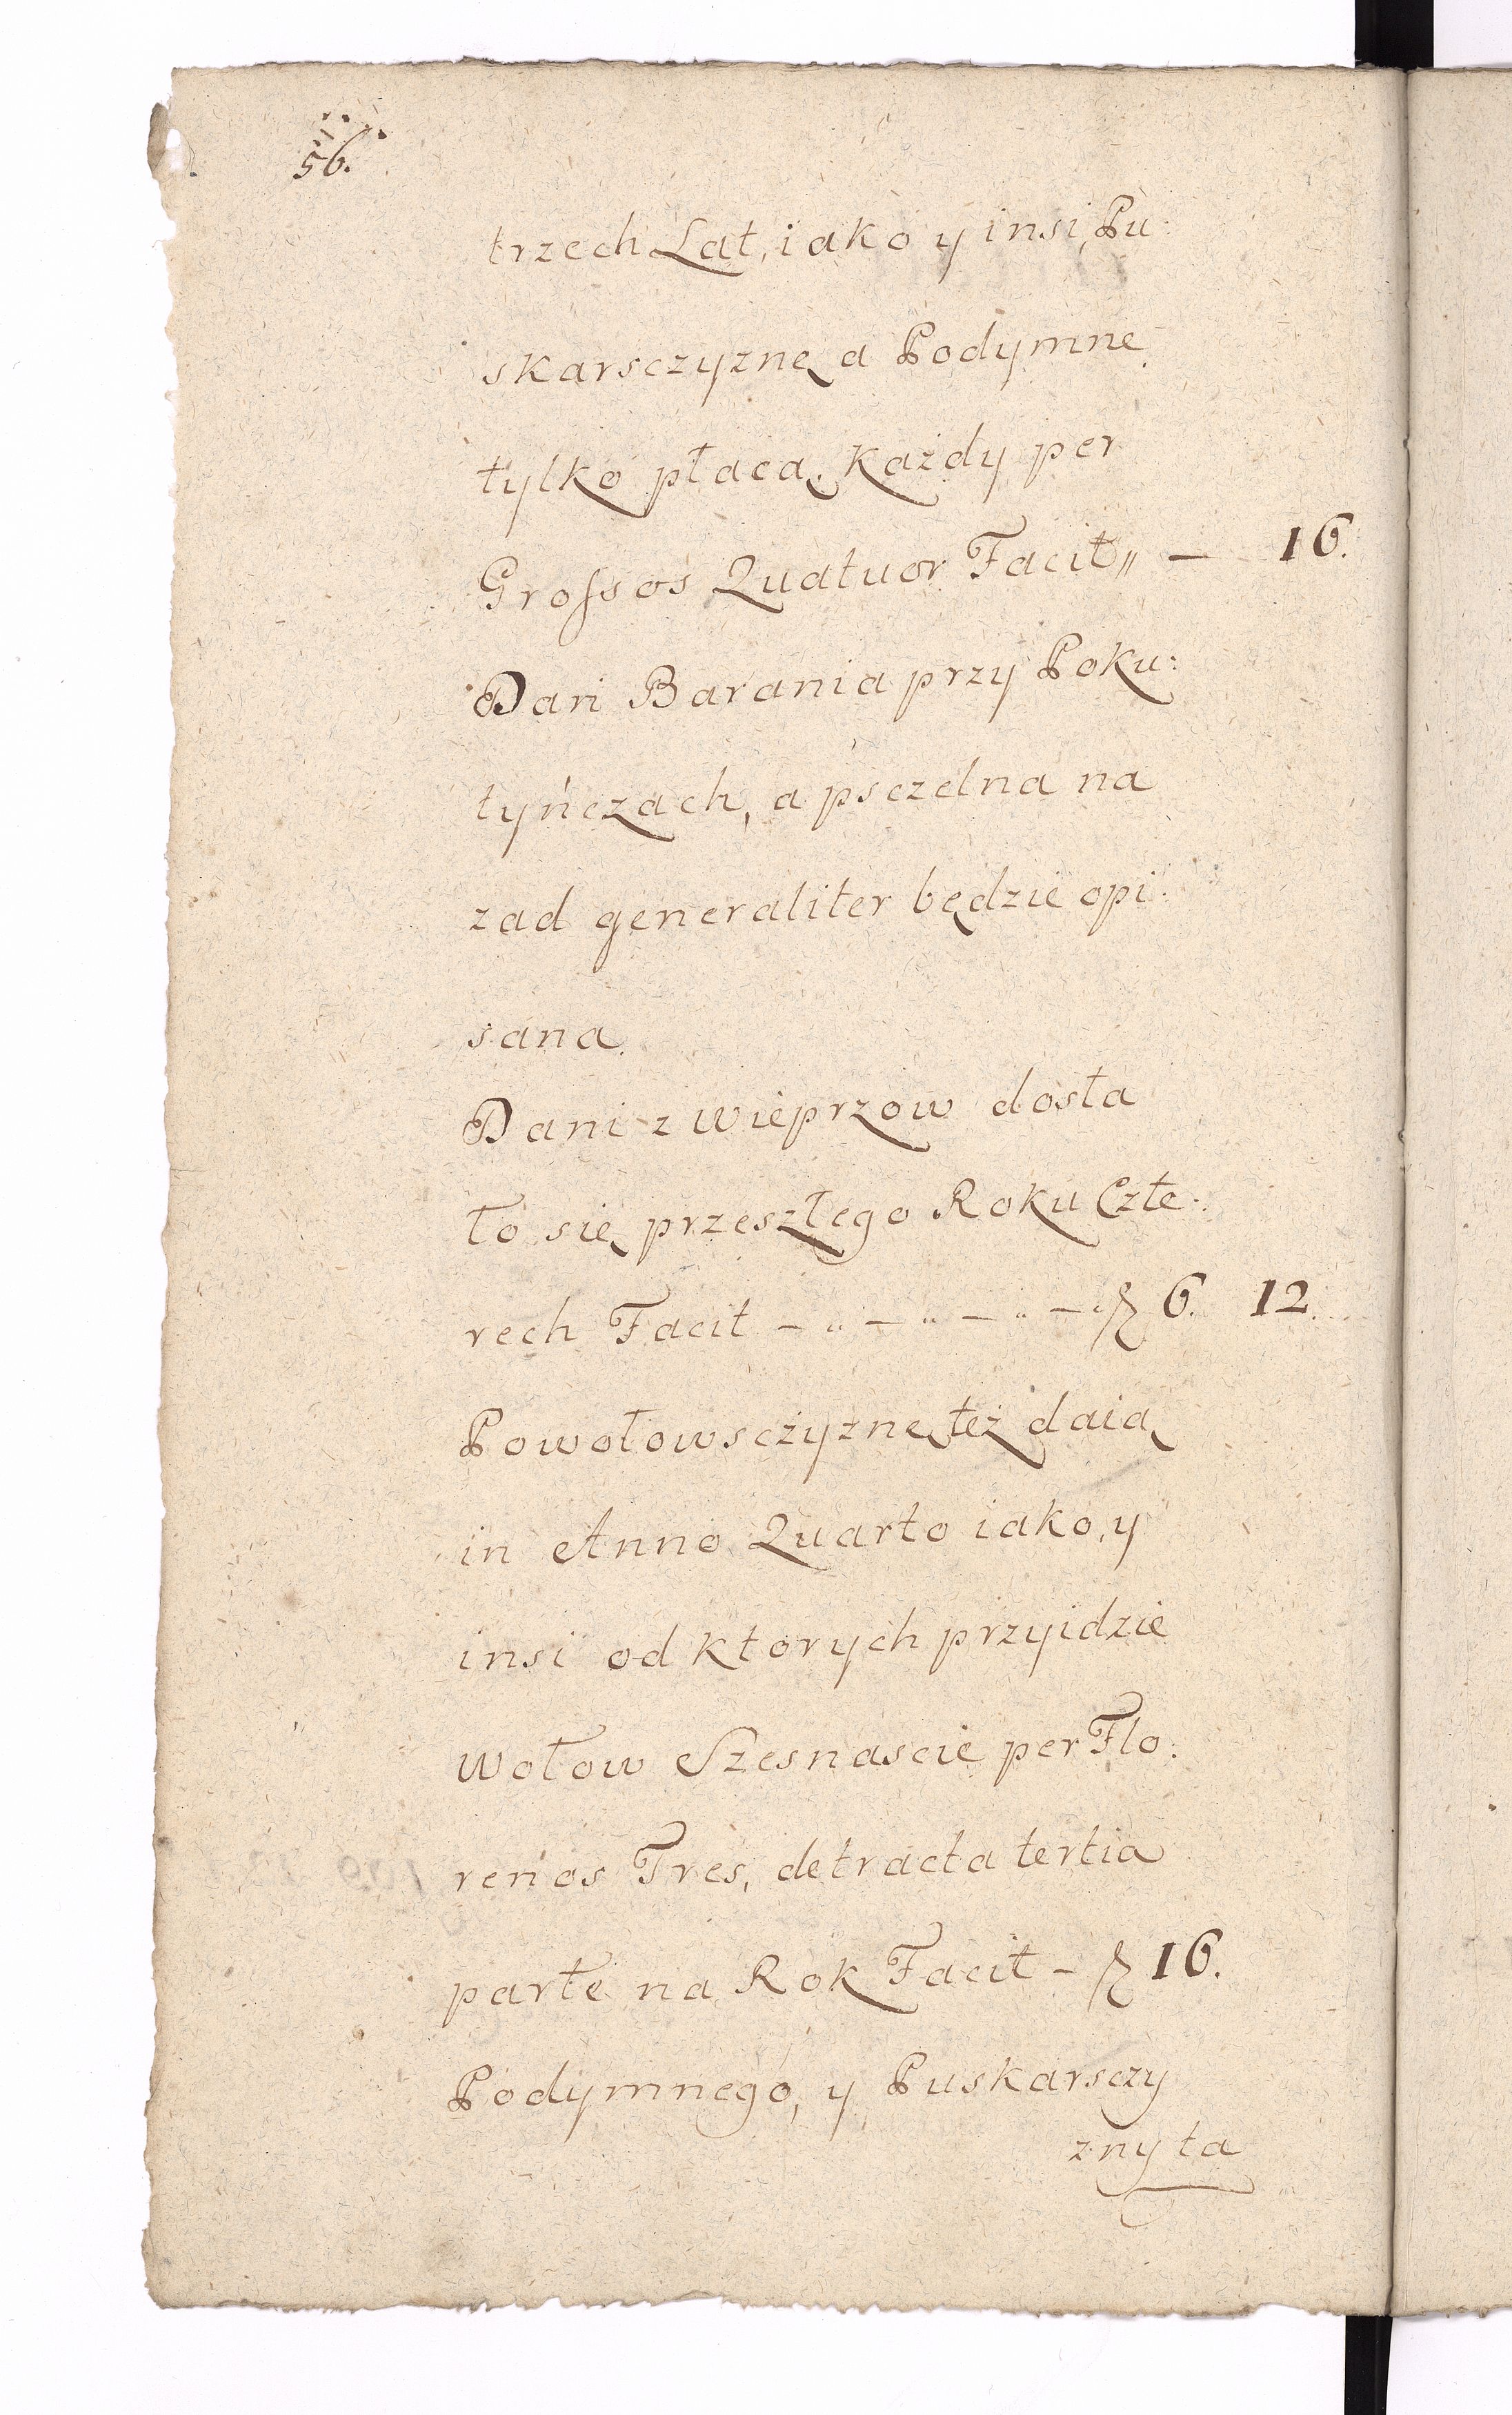 56.
trzech Lat, iako y insi, Pu:
skarsczyznę a Podymne
tylko płacą, każdy per
Grossos Quatuor Facit,, — 16.
Dań Barania przy Poku:
tyńczach, a psczelna na
zad generaliter będzie opi:
sana.
Dani z wieprzow dosta
ło się przeszłego Roku Czte:
rech Facit - „ - „ - „ - 6. 12.
Powołowsczyznę też daią
in Anno Quarto iako, y
insi od ktorych przyidzie
wołow Szesnascie per Flo:
renos Tres, detracta tertia
parte na Rok Facit - 16.
Podymnego, y Puskarsczy
zny ta